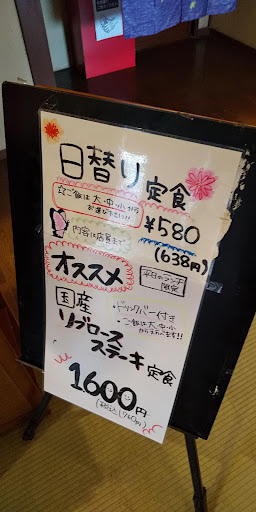 日替り定食
☆ご飯は大・中・小から
お選び下さい!!
¥580
(638円)
内容は店員まで
オススメ
平日のランチ
限定
国産
リブロース
ステーキ定食
・ドリンクバー付き
・ご飯は大・中・小
から選べます!!
1600円
(税込1760円)